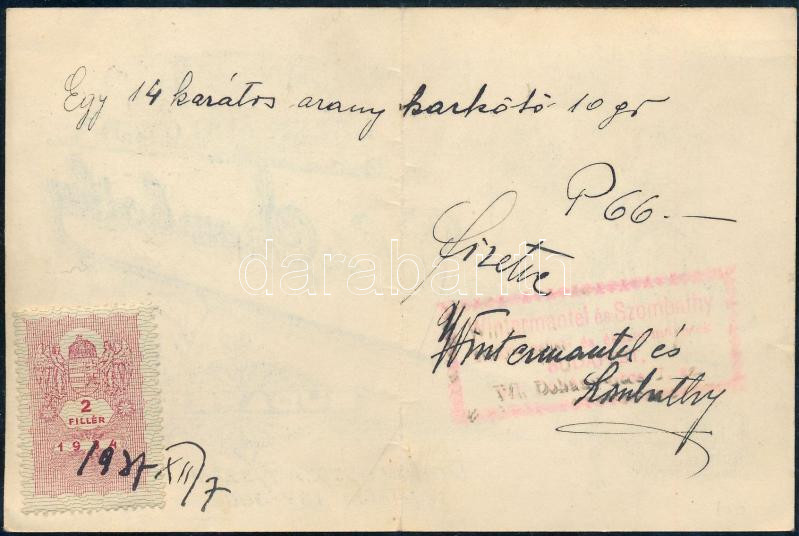 Egy 14 karátos arany karkötő 10 gr
P 66.—
Fizetve
Wintermantel és Szombathy
BUDAPEST
VII.
Wintermantel és
Szombathy
2
FILLÉR
1934
1937 XII/7
darabanth